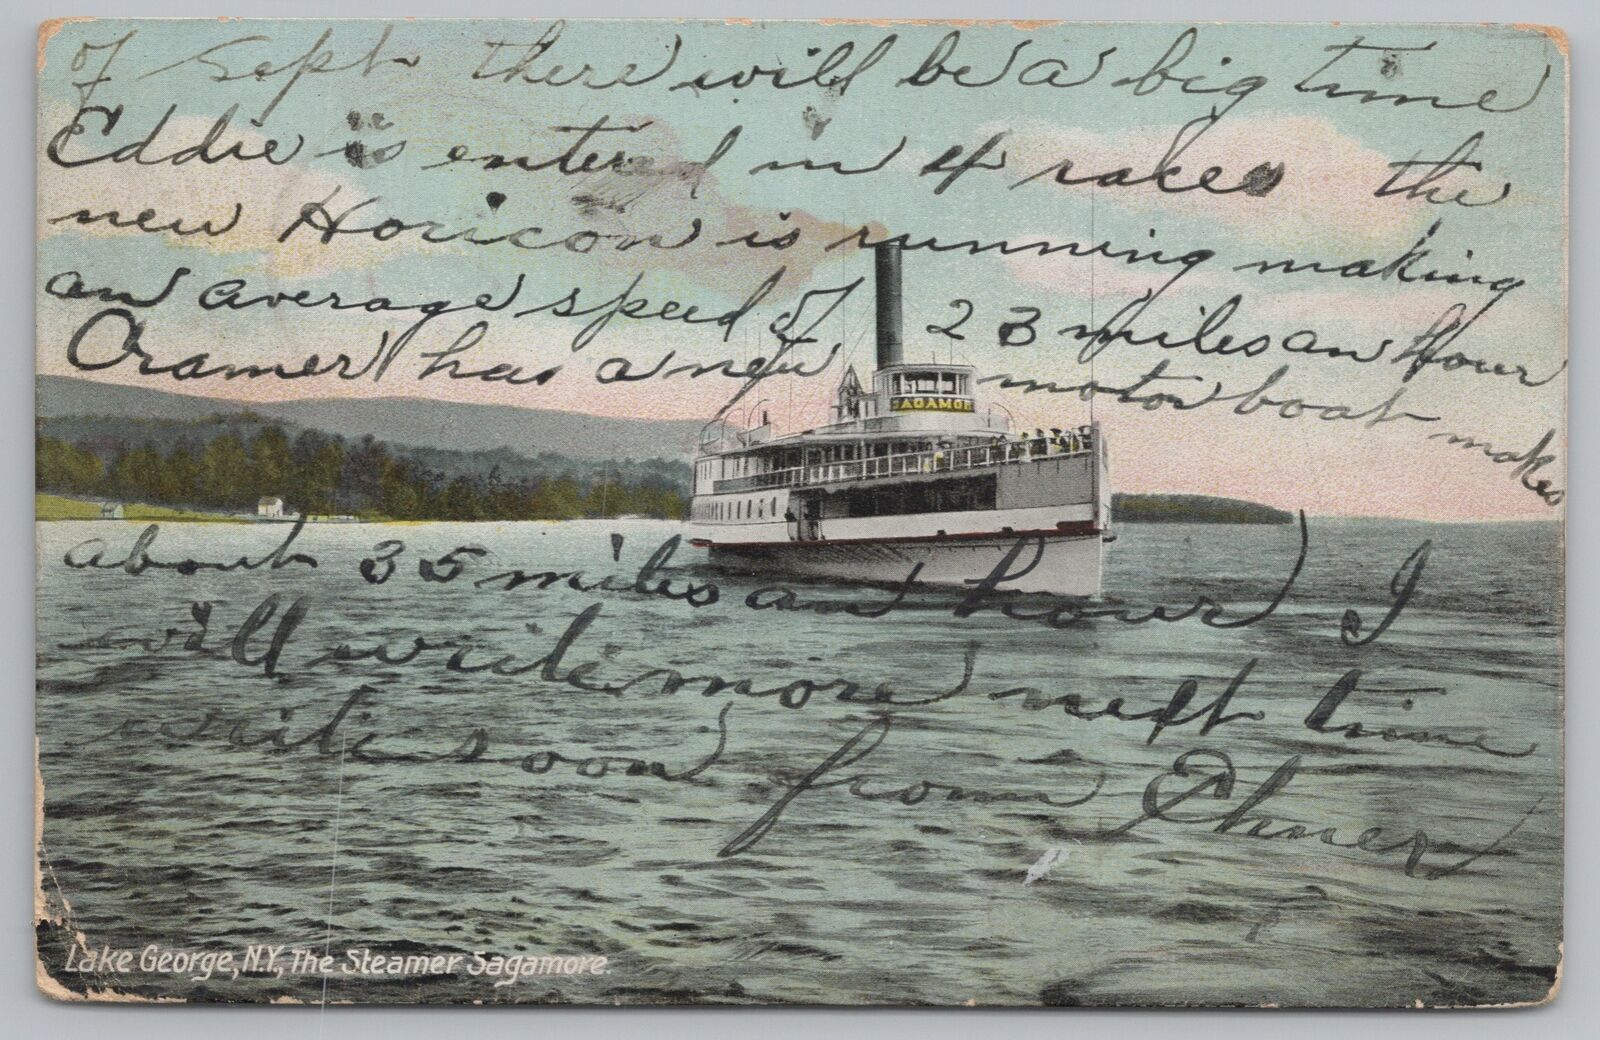 of Sept there will be a big time
Eddie is entered in 4 races the
new Horicon is running making
an average speed of 23 miles an hour
Cramer has a new motor boat makes
SAGAMORE
about 35 miles an hour I
will write more next time
write soon from Elmer
Lake George, N.Y., The Steamer Sagamore.